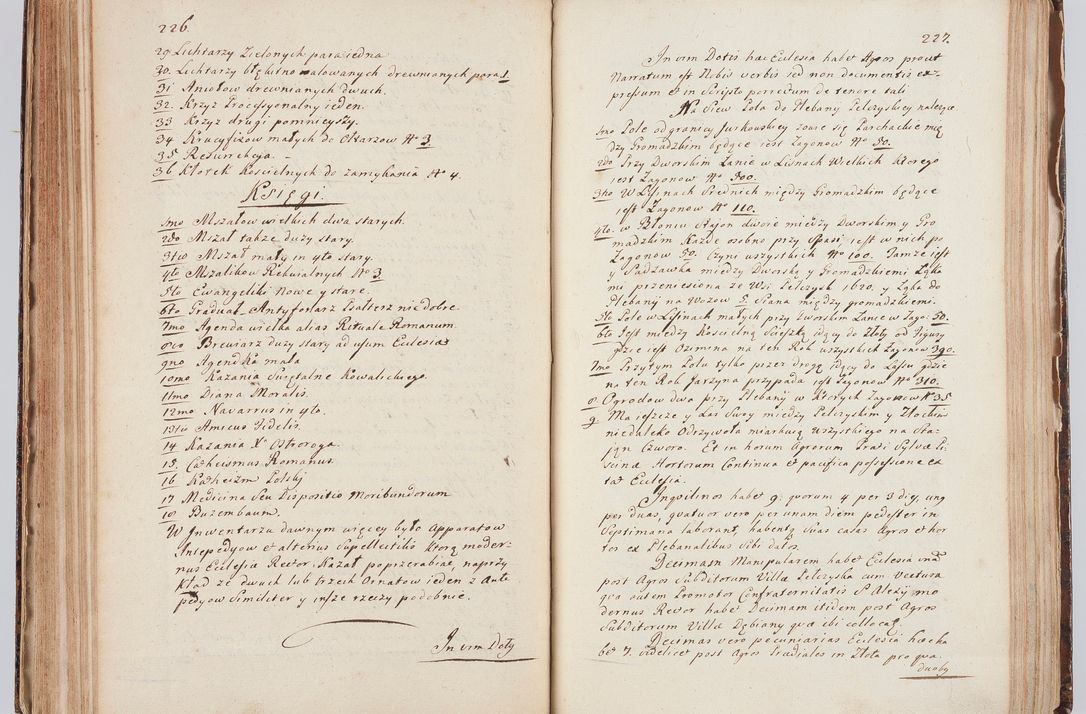 226.
29 Lichtarzy Zielonych para iedna
30. Lichtarzy błękitno malowanych drewnianych para 1
31 Aniołow drewnianych dwuch.
32. Krzyz Processyonalny ieden.
33 Krzyz drugi pomnieyszy.
34 Krucyfixow małych do Ołtarzow No 3.
35 Resurrekcja.
36 Kłotek Koscielnych do zamykania No 4.
Księgi.
1mo Mszałow wielkich dwa starych.
2do Mszał także duży stary.
3tio Mszał mały in 4to stary.
4to Mszalikow Rekwialnych No 3.
5to Ewangeliki Nowe y stare.
6to Graduał, Antyfonarz Psałterz niedobre.
7mo Agenda wielka alias Rituale Romanum.
8vo Breviarz duży stary ad usum Ecclesiæ
9no Agendka mała
10mo Kazania Swiętalne Kowalickiego.
11mo Diana Moralis.
12mo Navarrus in 4to.
13tio Amicus Fidelis.
14 Kazania X. Ostroroga.
15. Cathecismus Romanus.
16 Katheizm Polski
17 Medicina seu Dispositio Moribundorum
18 Buzembaum.
W Inwentarzu dawnym więcey było Apparatow
Antepedyow et alterius Supellectilis ktorą moder-
nus Ecclesiæ Rector Kazał poprzerabiać, naprzy
kład ze dwuch lub trzech Ornatow ieden z Ante
pedyow similiter y insze rzeczy podobnie.
In vim Doty
227.
In vim Dotis hæc Ecclesia habet Agros prout
Narratum est Nobis verbis sed non documentis ex-
pressum et in Scripto porrectum de tenore tali
Na Siew Pola do Plebany Pełczyskiey należące
1mo Pole od granicy Jurkowskiey zowie się Parchackie mię
dzy Gromadzkim będące iest Zagonow No 50.
2do Przy Dworskim Łanie w Lisnach Wielkich ktorego
iest Zagonow No 300.
3tio W Lisinach Srednich między Gromadzkim będące
iest Zagonow No 110.
4to. w Błoniu Stajon dwoie miedzy Dworskim y Gro
madzkim Kazde osobno przy iest w nich po
Zagonow 50. Czyni wszystkich No 100. Tamże iest
y Sadzawka między Dworską y Gromadzkiemi Łąka
mi przeniesiona ze Wsi Pełczysk 1620. y Łąka do
Plebany na Wozow 5 Siana między gromadzkiemi.
5to Pole w Lisinach małych przy Dworskim Łanie w Zago: 50.
6to Jest miedzy Koscielną Scieszką idącą do Złoty od Figury
gdzie iest Ozimina na ten Rok wszystkich Zagonow 390.
7mo Przytym Polu tylko przez drogę idącą do Lasu gdzie
na ten Rok Jarzyna przypada iest Zagonow No 310.
8 Ogrodow dwa przy Plebany w ktorych Zagonow No 35
9 Ma ieszcze y Las Swoy między Pełczyskim y Złockim
niedaleko Odrzywoła miarkuią wszystkiego na Sta-
ją Czworo. Et in horum Agrorum Prati Sylvæ Pi
scinæ Hortorum Continua et pacifica possessione ex
tat Ecclesia.
Inquilinos habet 9: quorum 4 per 3 dies, unus
per duas, quatuor vero per unam diem pedester in
Septimana laborant, habentes suas casas Agros et hor
tos ex Plebanalibus Sibi datos.
Decimam Manipularem habet Ecclesia unam
post Agros Subditorum Villæ Pelczyska cum Vectura
qua autem Promotor Confraternitatis S. Alexy mo
dernus Rector habet Decimam itidem post Agros
Subditorum Villæ Dębiany quæ ibi collocat.
Decimas vero pecuniarias Ecclesia hæc ha
bet 7. videlicet post Agros Prædiales in Złota pro qua